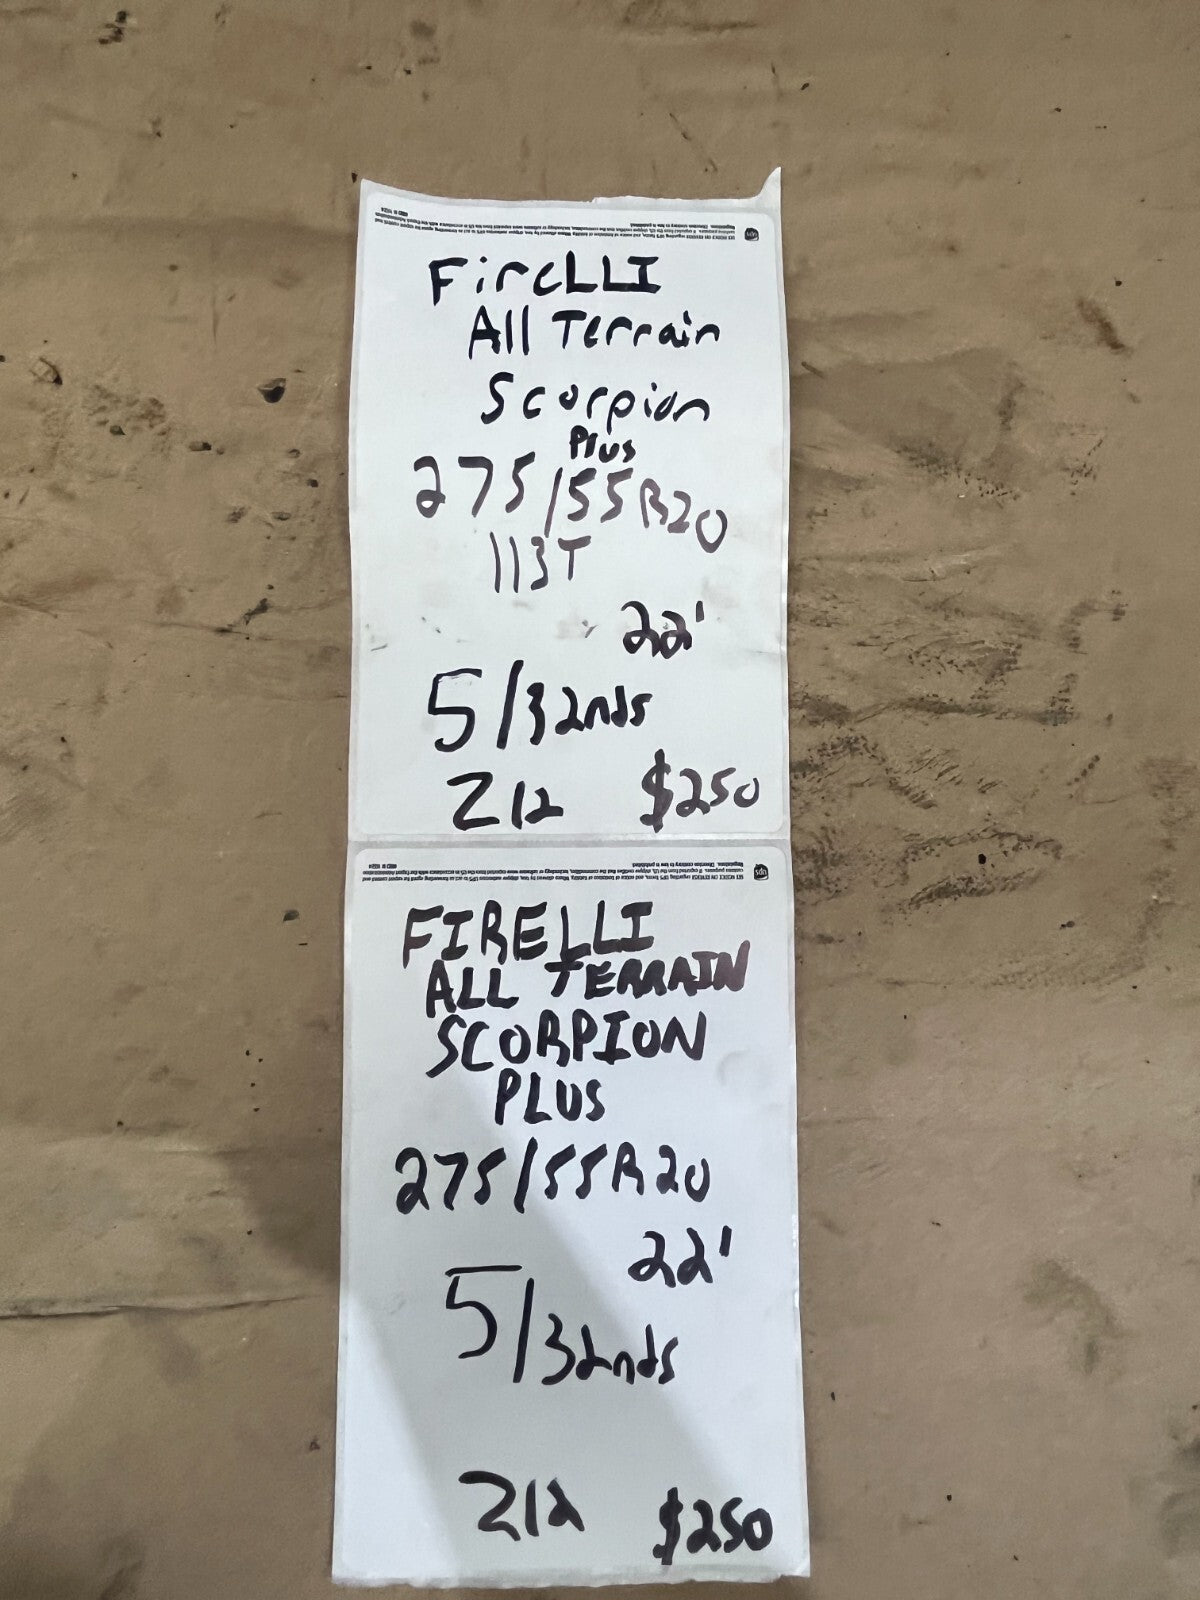 FireLLI
All Terrain
Scorpion
Plus
275/55R20
113T
22'
5/32nds
Z12 $250
FIRELLI
ALL TERRAIN
SCORPION
PLUS
275/55R20
22'
5/32nds
Z12 $250